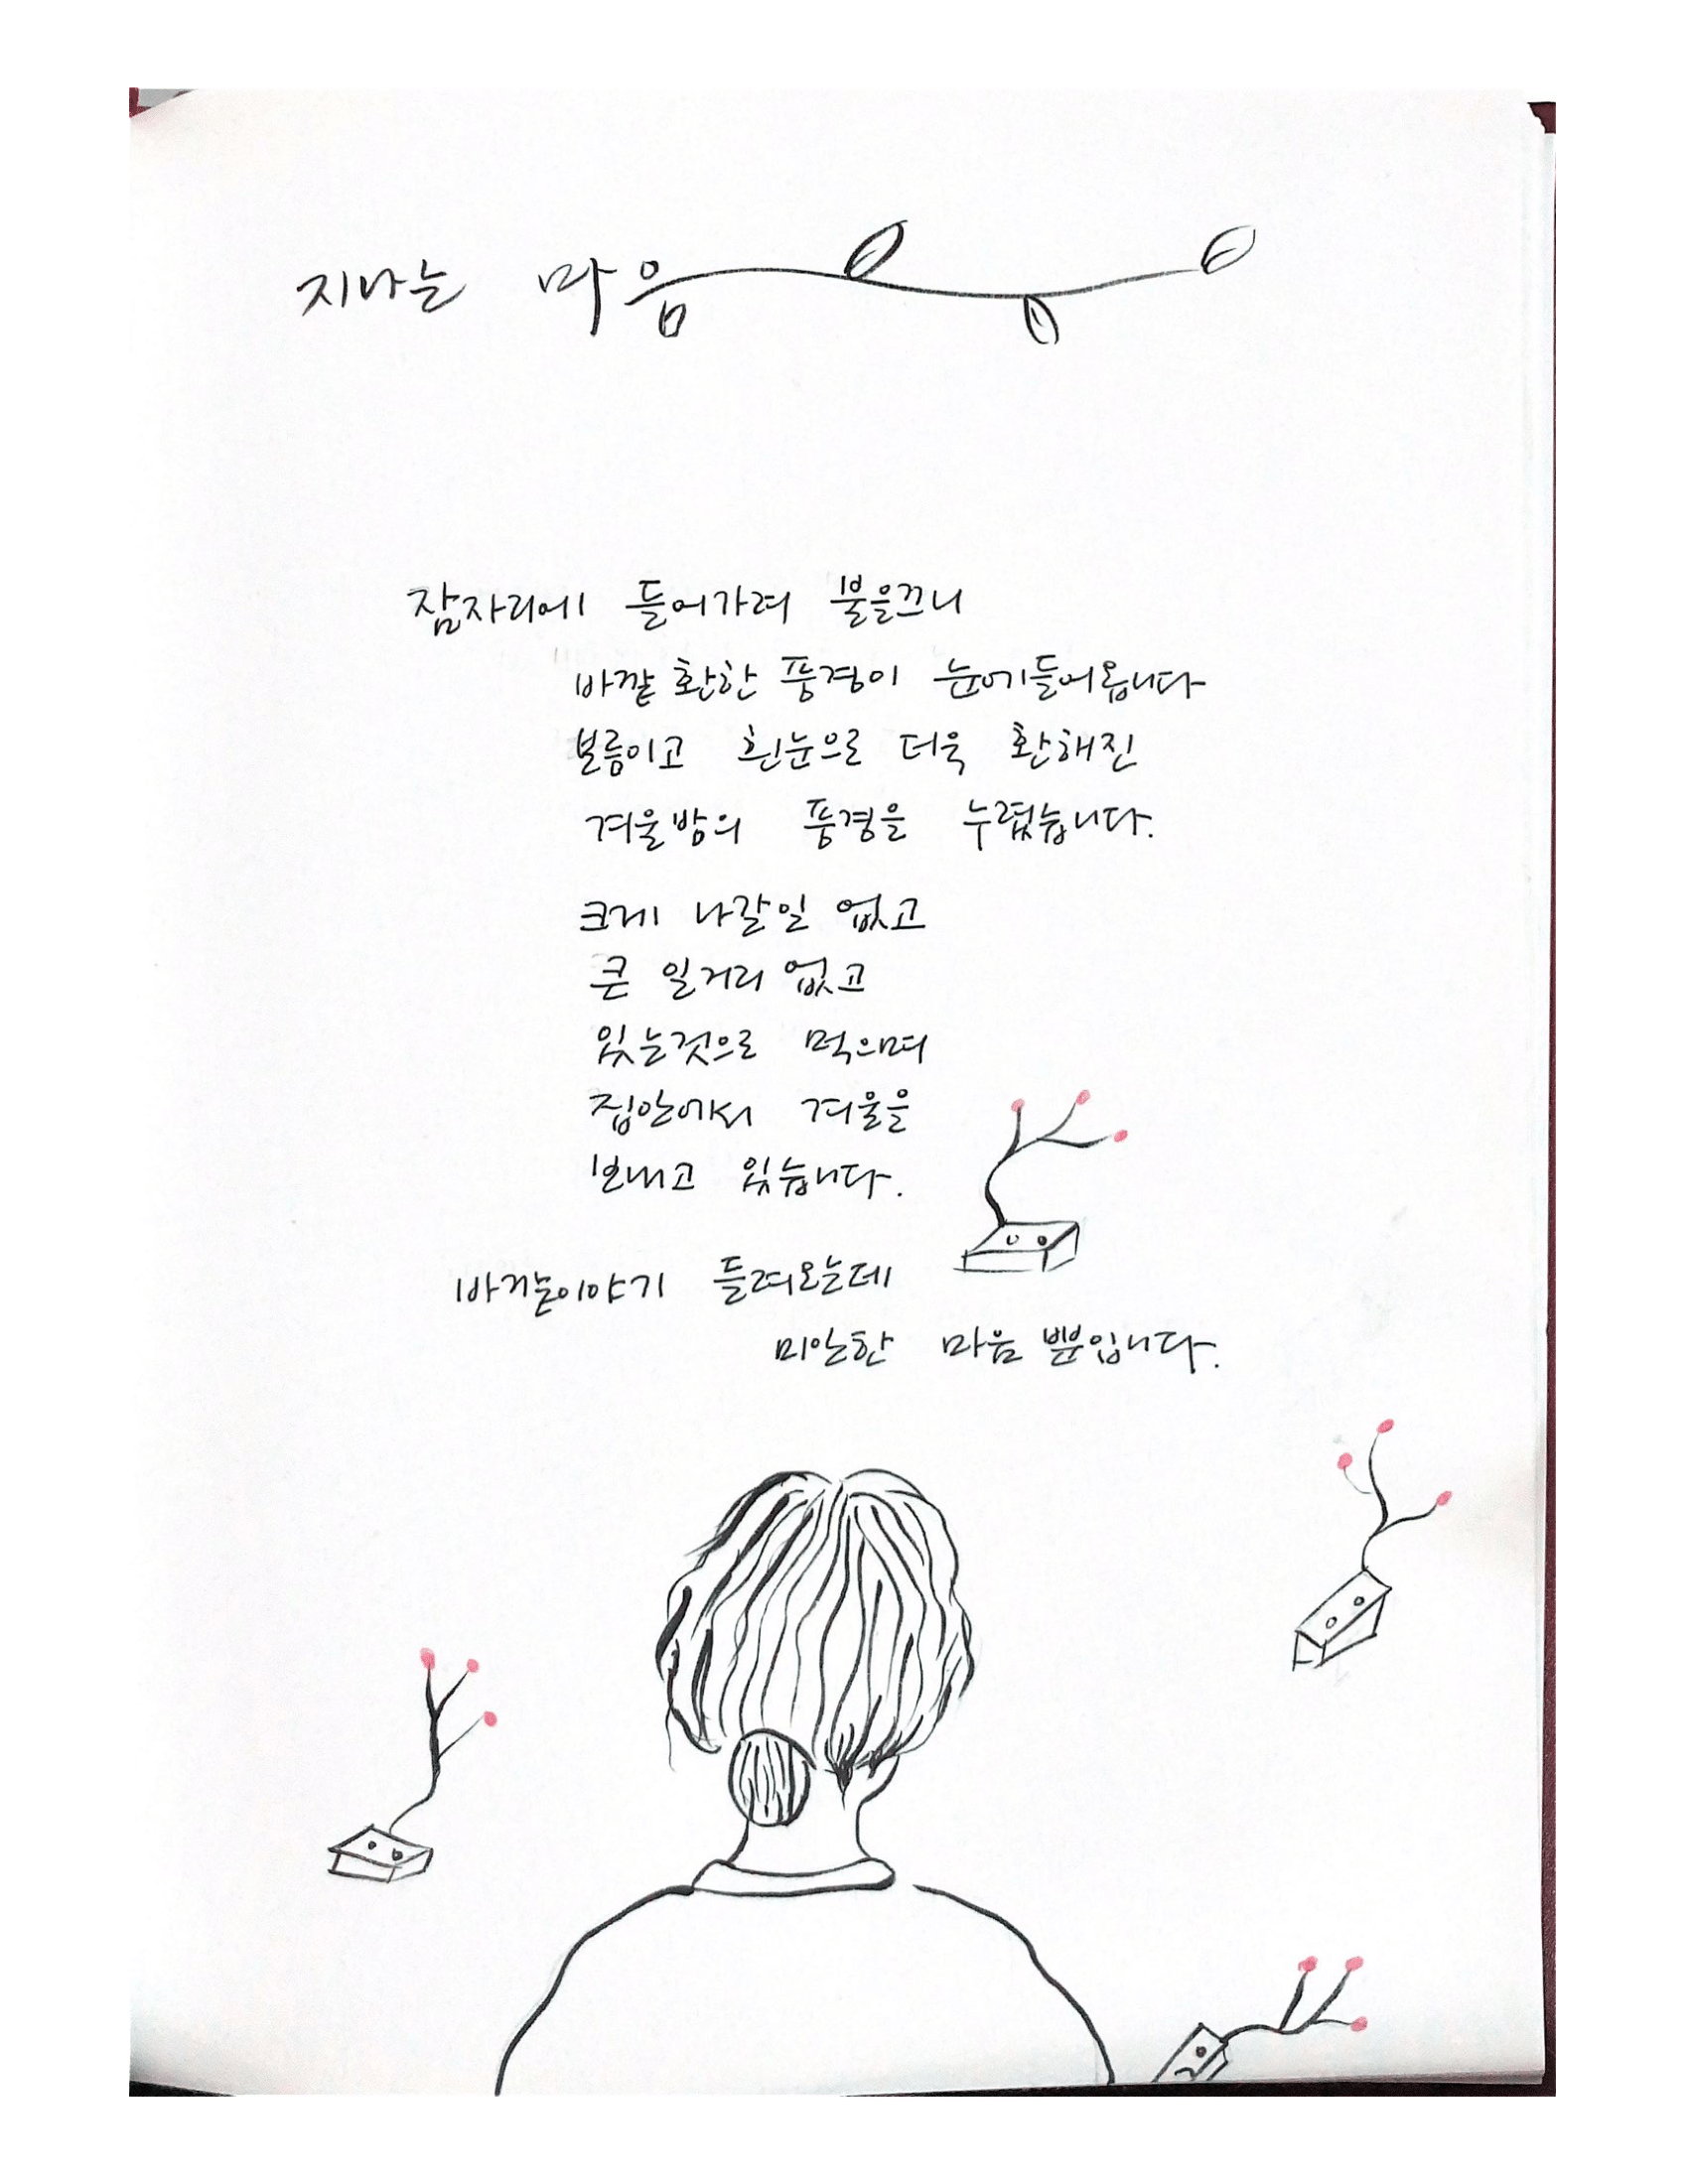 지나는 마음
잠자리에 들어가려 불을끄니
바깥 환한 풍경이 눈에들어옵니다
보름이고 흰눈으로 더욱 환해진
겨울밤의 풍경을 누렸습니다.
크게 나갈일 없고
큰 일거리 없고
있는것으로 먹으며
집안에서 겨울을
보내고 있습니다.
이야기 들려오는데
미안한 마음 뿐입니다.